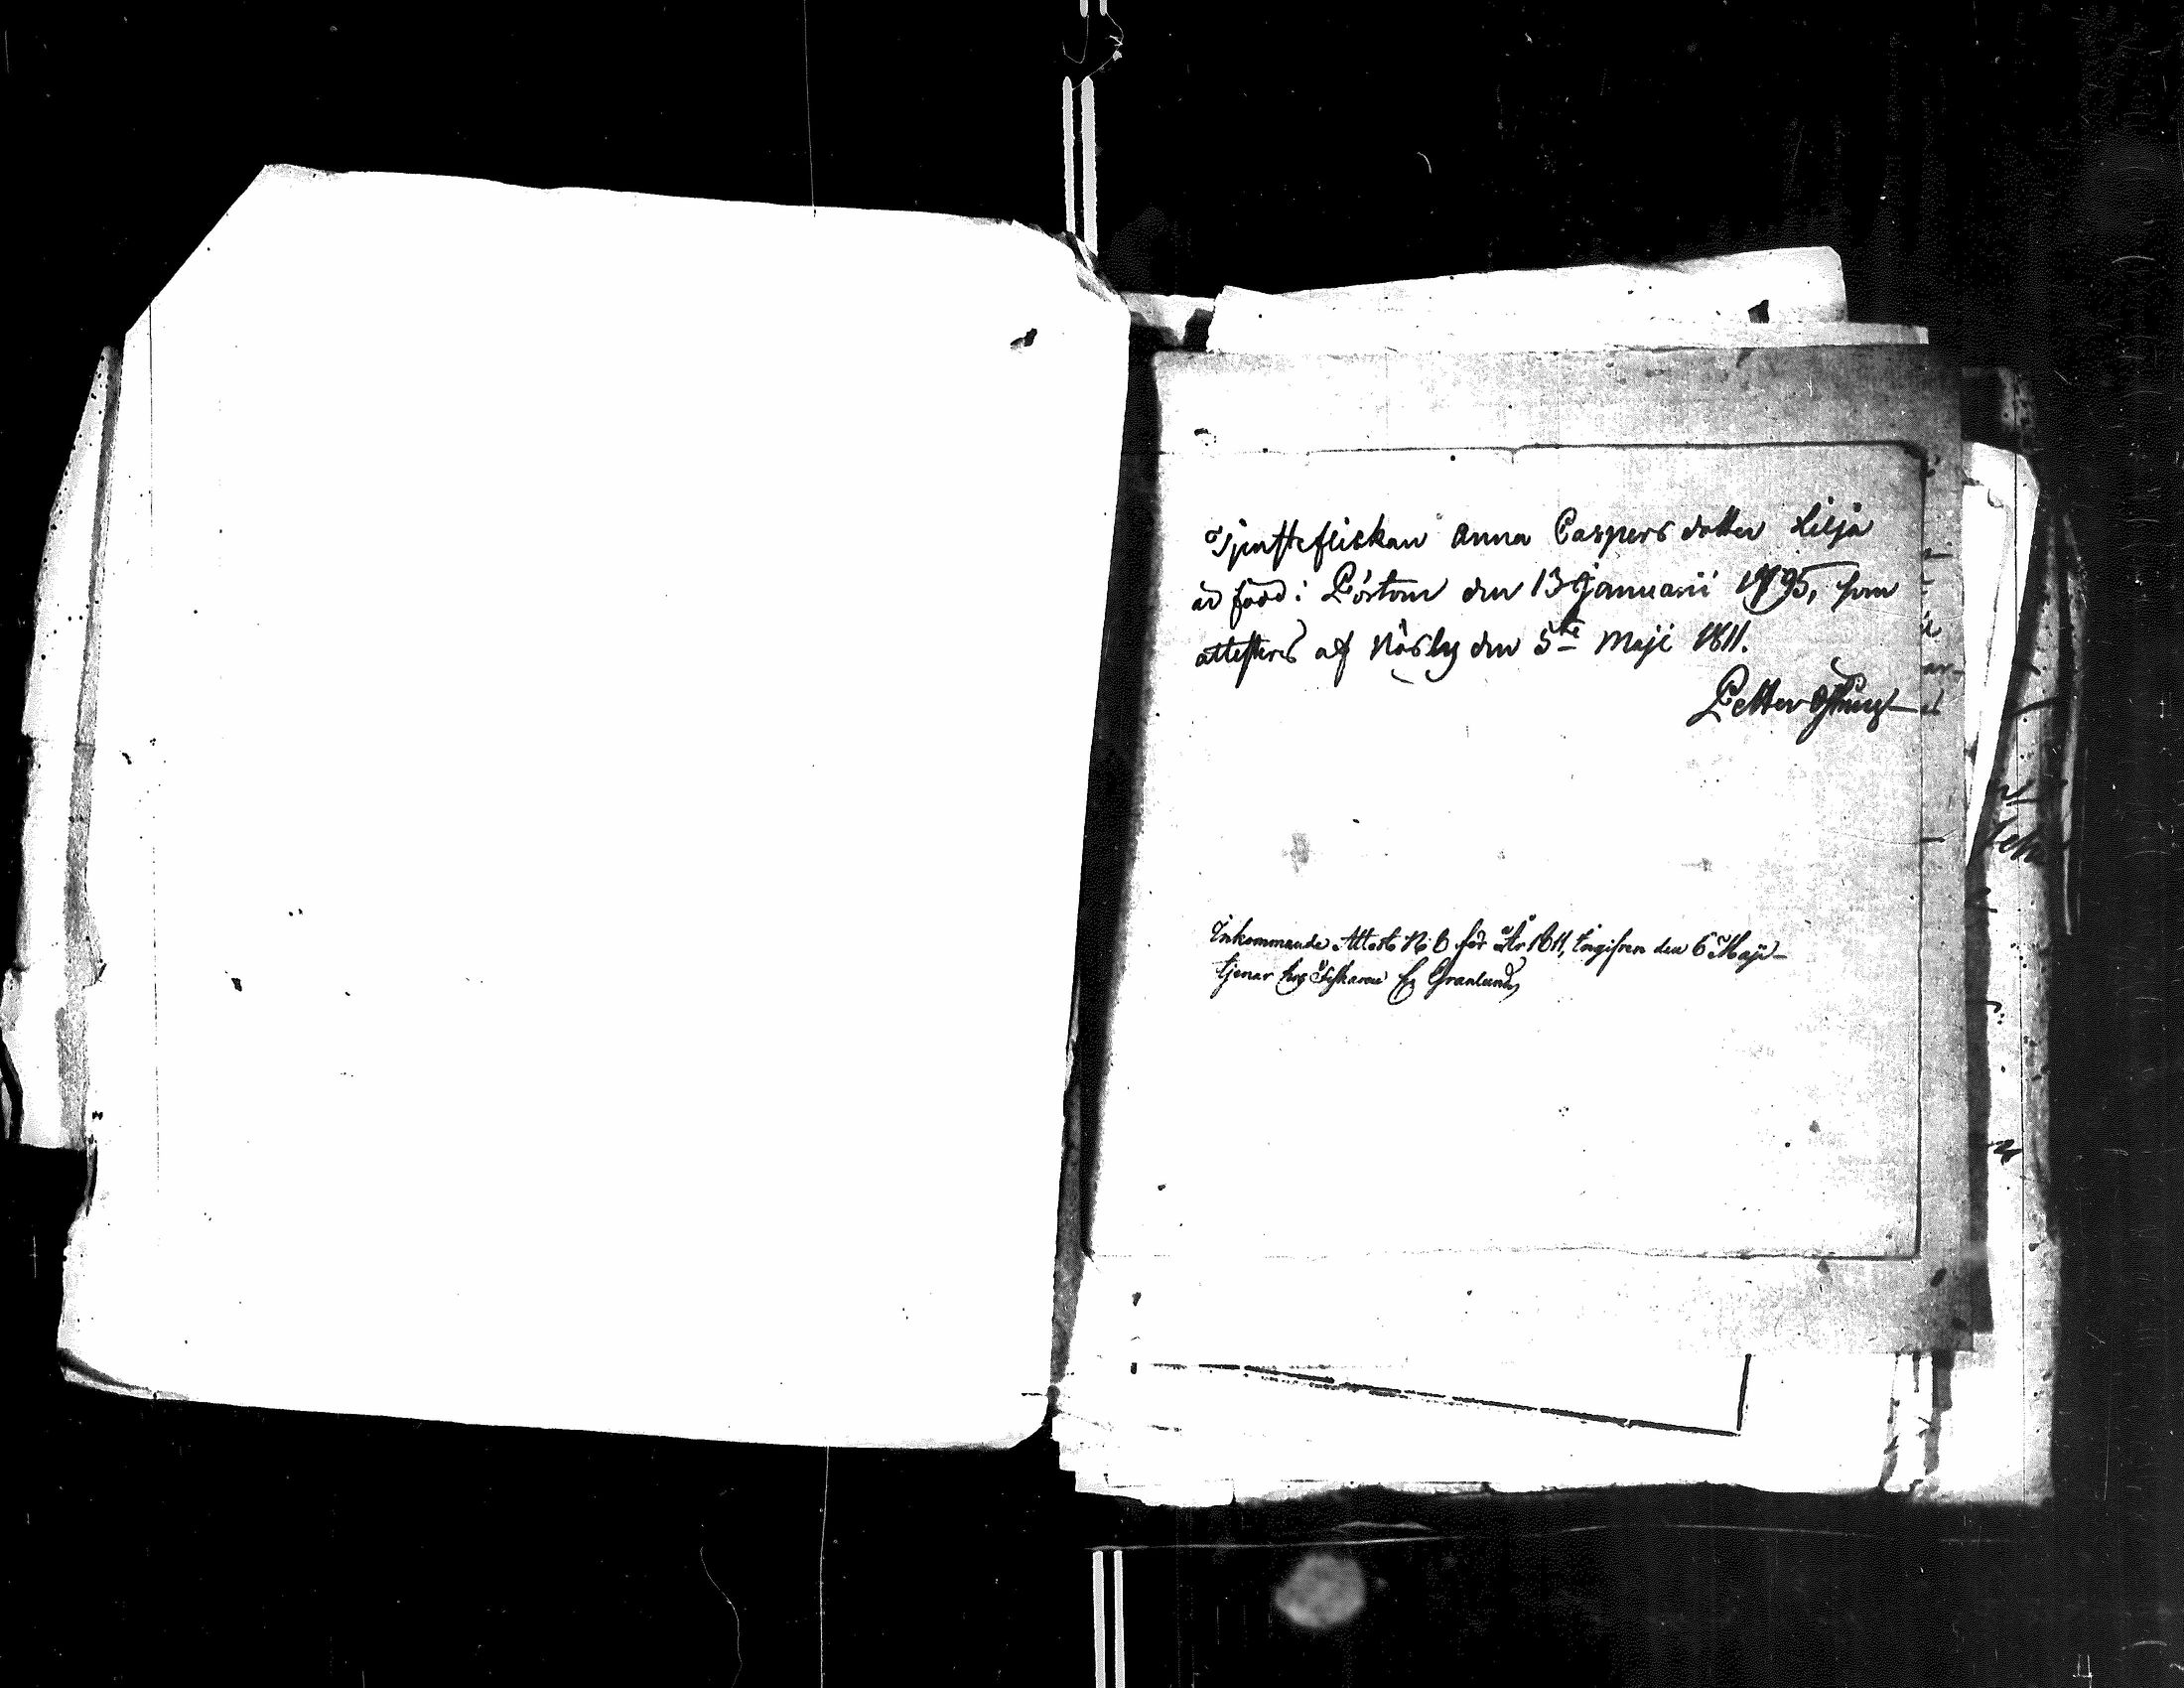 Tjensteflickan Anna Caspers dotter Lilja
är född i Pörtom den 13 Januarii 1795, som
attesteras af Näsby den 5te Maji 1811.
Petter
Inkommande Attest N. 6 för år 1811, ingifven den 6 Maji
tjenar hos Fiskaren Granlund